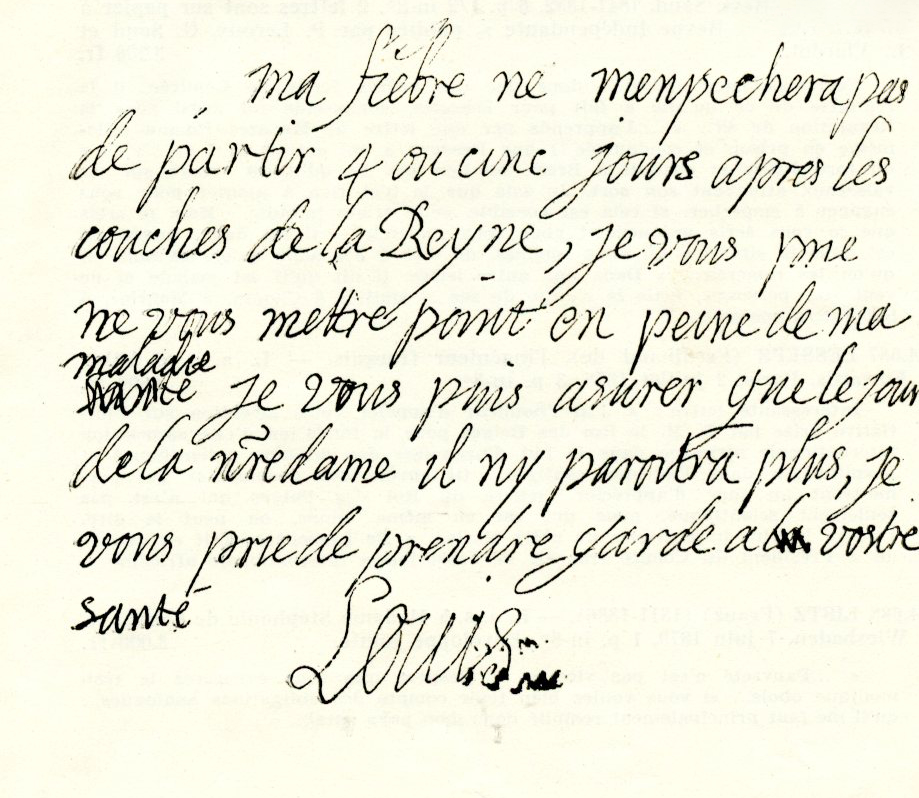 ma fiebre ne menpechera pas
de partir 4 ou cinc jours apres les
couches de la Reyne, je vous prie
ne vous mettre point en peine de ma
maladie
santé je vous puis asurer que le jour
de la nr̃edame il ny paroitra plus, je
vous prie de prendre garde a vostre
santé
Louis